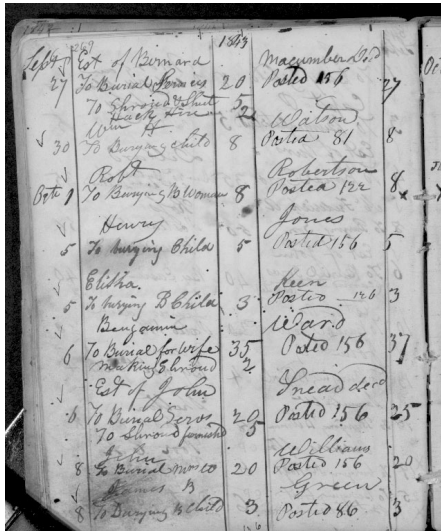 269 1863
Sept Est of Bernard Macumber Decd
27 To Burial Services 20 Posted 156 27
To Shroud & Suit 5
Hack Hire 2
Wm H. Watson
30 To Burying Child 8 Posted 81 8
Robt Robertson
Octo 1 To Burying B Woman 8 Posted 122 8
Henry Jones
5 To burying Child 5 Posted 156 5
Elisha Keen
5 To burying B Child 3 Posted 126 3
Benjamin Ward
6 To Burial for Wife 35 Posted 156 37
Making Shroud 2
Est of John Snead decd
6 To Burial Servs 20 Posted 156 25
To Shroud furnished 5
John Williams
8 To Burial 20 Posted 156 20
James B Green
8 To Burying B Child 3 Posted 86 3